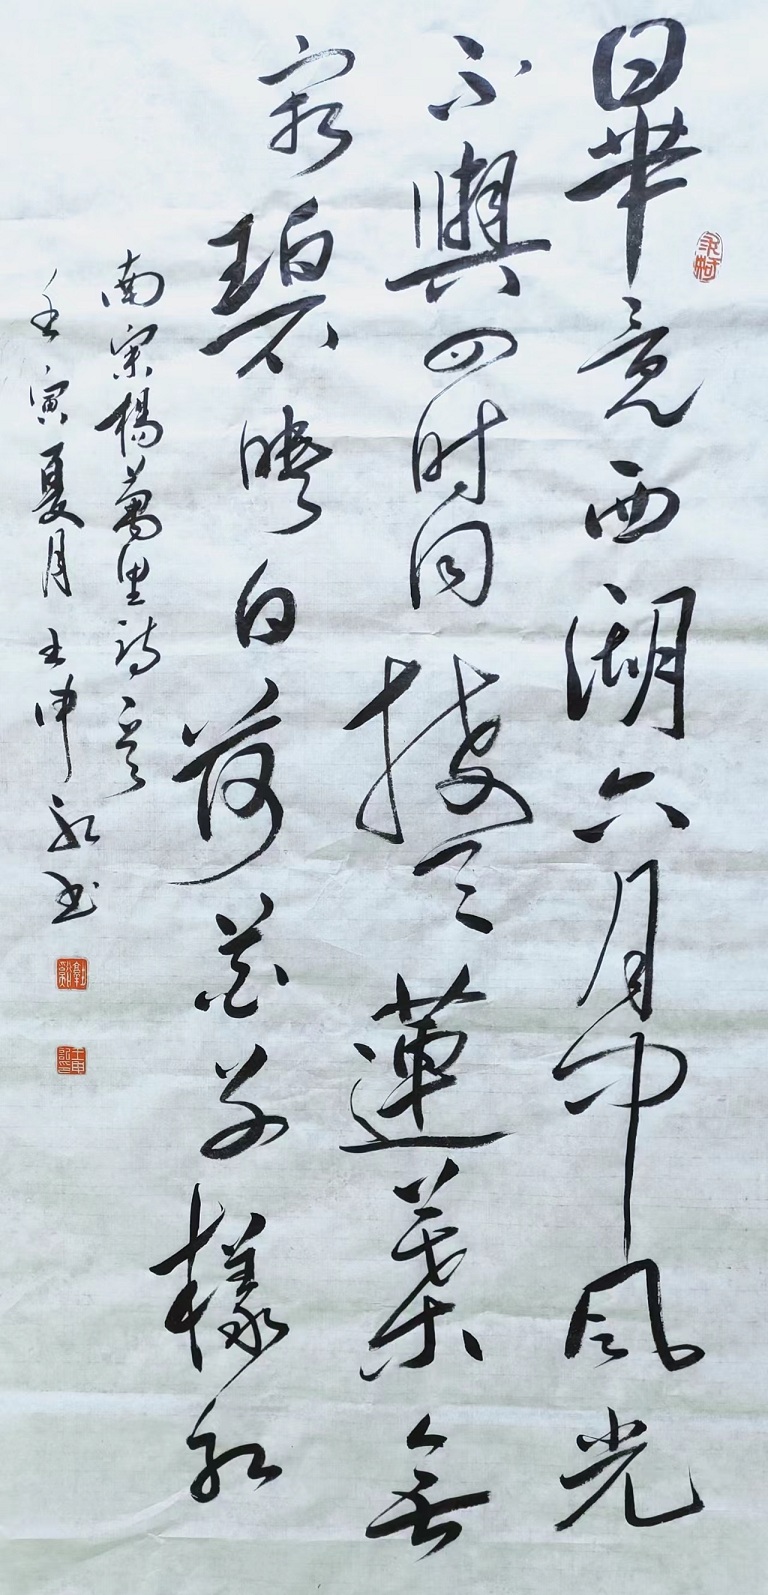 畢竟西湖六月中風光
不與四時同接天蓮葉無
窮碧映日荷花別樣紅
南宋楊萬里詩
壬寅夏月王申書